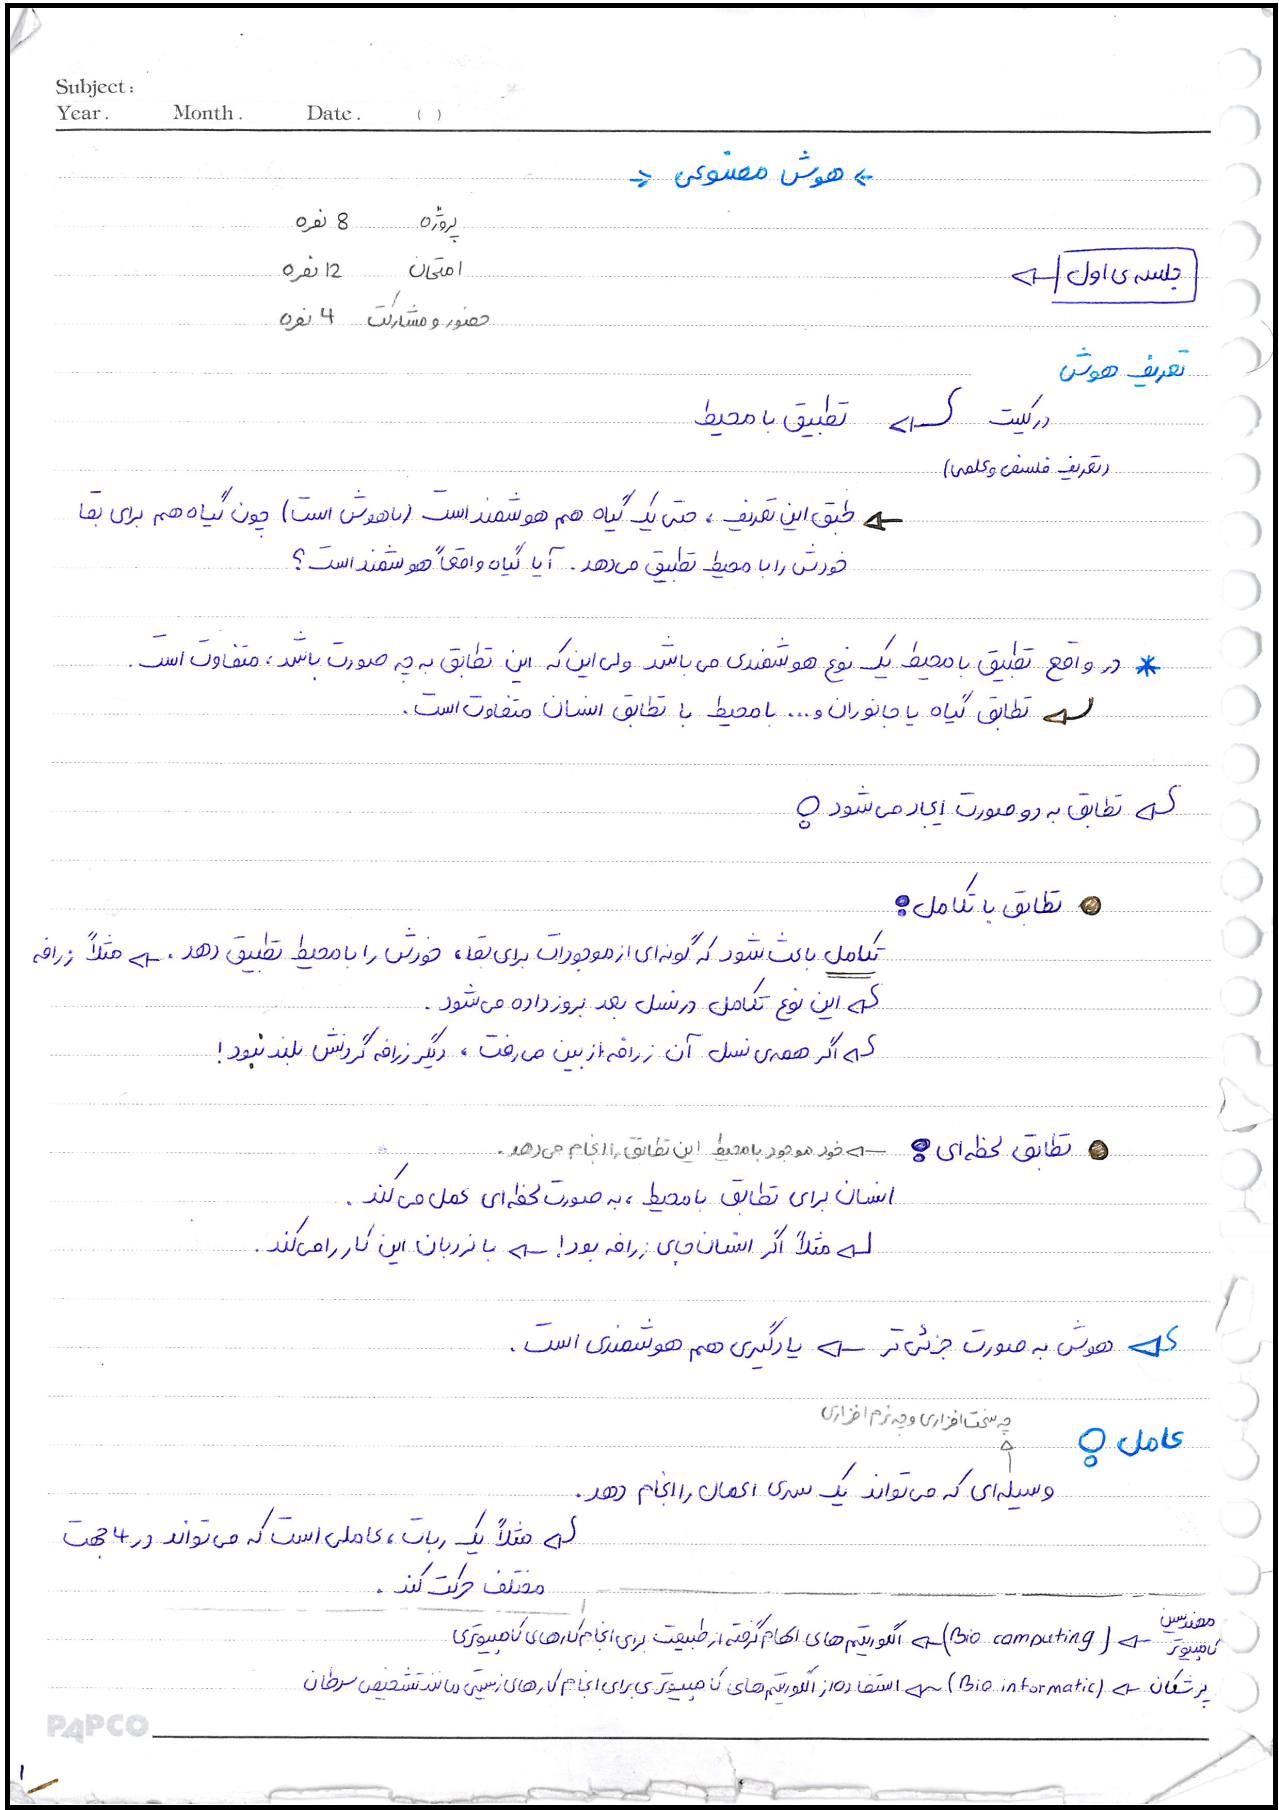 Subject:
Year. Month. Date. ( )
← هوش مصنوعی →
پروژه 8 نمره
امتحان 12 نمره
حضور و مشارکت 4 نمره
جلسه ی اول ←
تعریف هوش
در کلیت ← تطبیق با محیط
(تعریف فلسفی و علمی)
← طبق این تعریف ، حتی یک گیاه هم هوشمند است (باهوش است) چون گیاه هم برای بقا
خودش را با محیط تطبیق می‌دهد. آیا گیاه واقعاً هوشمند است؟
* در واقع تطبیق با محیط یک نوع هوشمندی می باشد ولی این که این تطابق به چه صورت باشد ، متفاوت است.
← تطابق گیاه یا جانوران و... با محیط با تطابق انسان متفاوت است.
← تطابق به دو صورت ایجاد می‌شود:
● تطابق با تکامل:
تکامل باعث شود که گونه‌ای از موجودات برای بقا، خودش را با محیط تطبیق دهد. ← مثلاً زرافه
← این نوع تکامل در نسل بعد بروز داده می‌شود.
← اگر همه‌ی نسل آن زرافه از بین می‌رفت ، دیگر زرافه گردنش بلند نبود!
● تطابق لحظه‌ای: ← خود موجود با محیط این تطابق را انجام می‌دهد.
انسان برای تطابق با محیط ، به صورت لحظه‌ای عمل می‌کند.
← مثلاً اگر انسان جای زرافه بود! ← با نردبان این کار را می‌کند.
← هوش به صورت جزئی تر ← یادگیری هم هوشمندی است.
چه سخت افزاری و چه نرم افزاری
عامل:
وسیله‌ای که می‌تواند یک سری اعمال را انجام دهد.
← مثلاً یک ربات ، عاملی است که می‌تواند در 4 جهت
مختلف حرکت کند.
مهندسین کامپیوتر ← (Bio computing) ← الگوریتم های الهام گرفته از طبیعت برای انجام کارهای کامپیوتری
پزشکان ← (Bio informatic) ← استفاده از الگوریتم های کامپیوتری برای انجام کارهای زیستی مانند تشخیص سرطان
PAPCO
۱